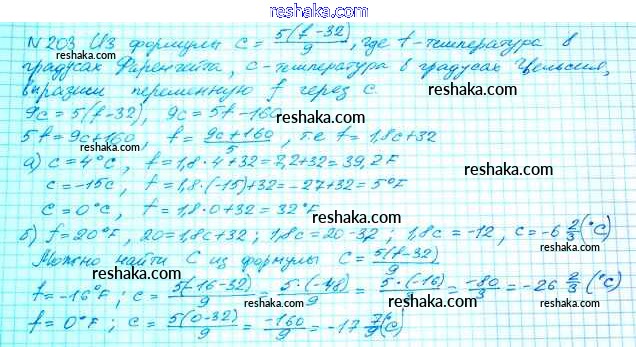 reshaka.com
N 203 Из формулы c = 5(f-32)/9, где f - температура в
reshaka.com
градусах Фаренгейта, c - температура в градусах Цельсия,
выразим переменную f через c
9c = 5(f-32), 9c = 5f - 160 reshaka.com
5f = 9c + 160, f = (9c+160)/5, т.е f = 1,8c + 32
reshaka.com
а) c = 4°C, f = 1,8 · 4 + 32 = 7,2 + 32 = 39,2 F
reshaka.com
c = -15c, f = 1,8 · (-15) + 32 = -27 + 32 = 5°F
reshaka.com
c = 0°C, f = 1,8 · 0 + 32 = 32°F
reshaka.com
б) f = 20°F, 20 = 1,8c + 32; 1,8c = 20 - 32; 1,8c = -12, c = -6 2/3 (°C)
reshaka.com
Можно найти C из формулы c = 5(f-32)/9
reshaka.com
f = -16°F; c = 5(-16-32)/9 = 5·(-48)/9 = 5·(-16)/3 = -80/3 = -26 2/3 (°C)
reshaka.com
f = 0°F; c = 5(0-32)/9 = -160/9 = -17 7/9 (°C)
reshaka.com
reshaka.com